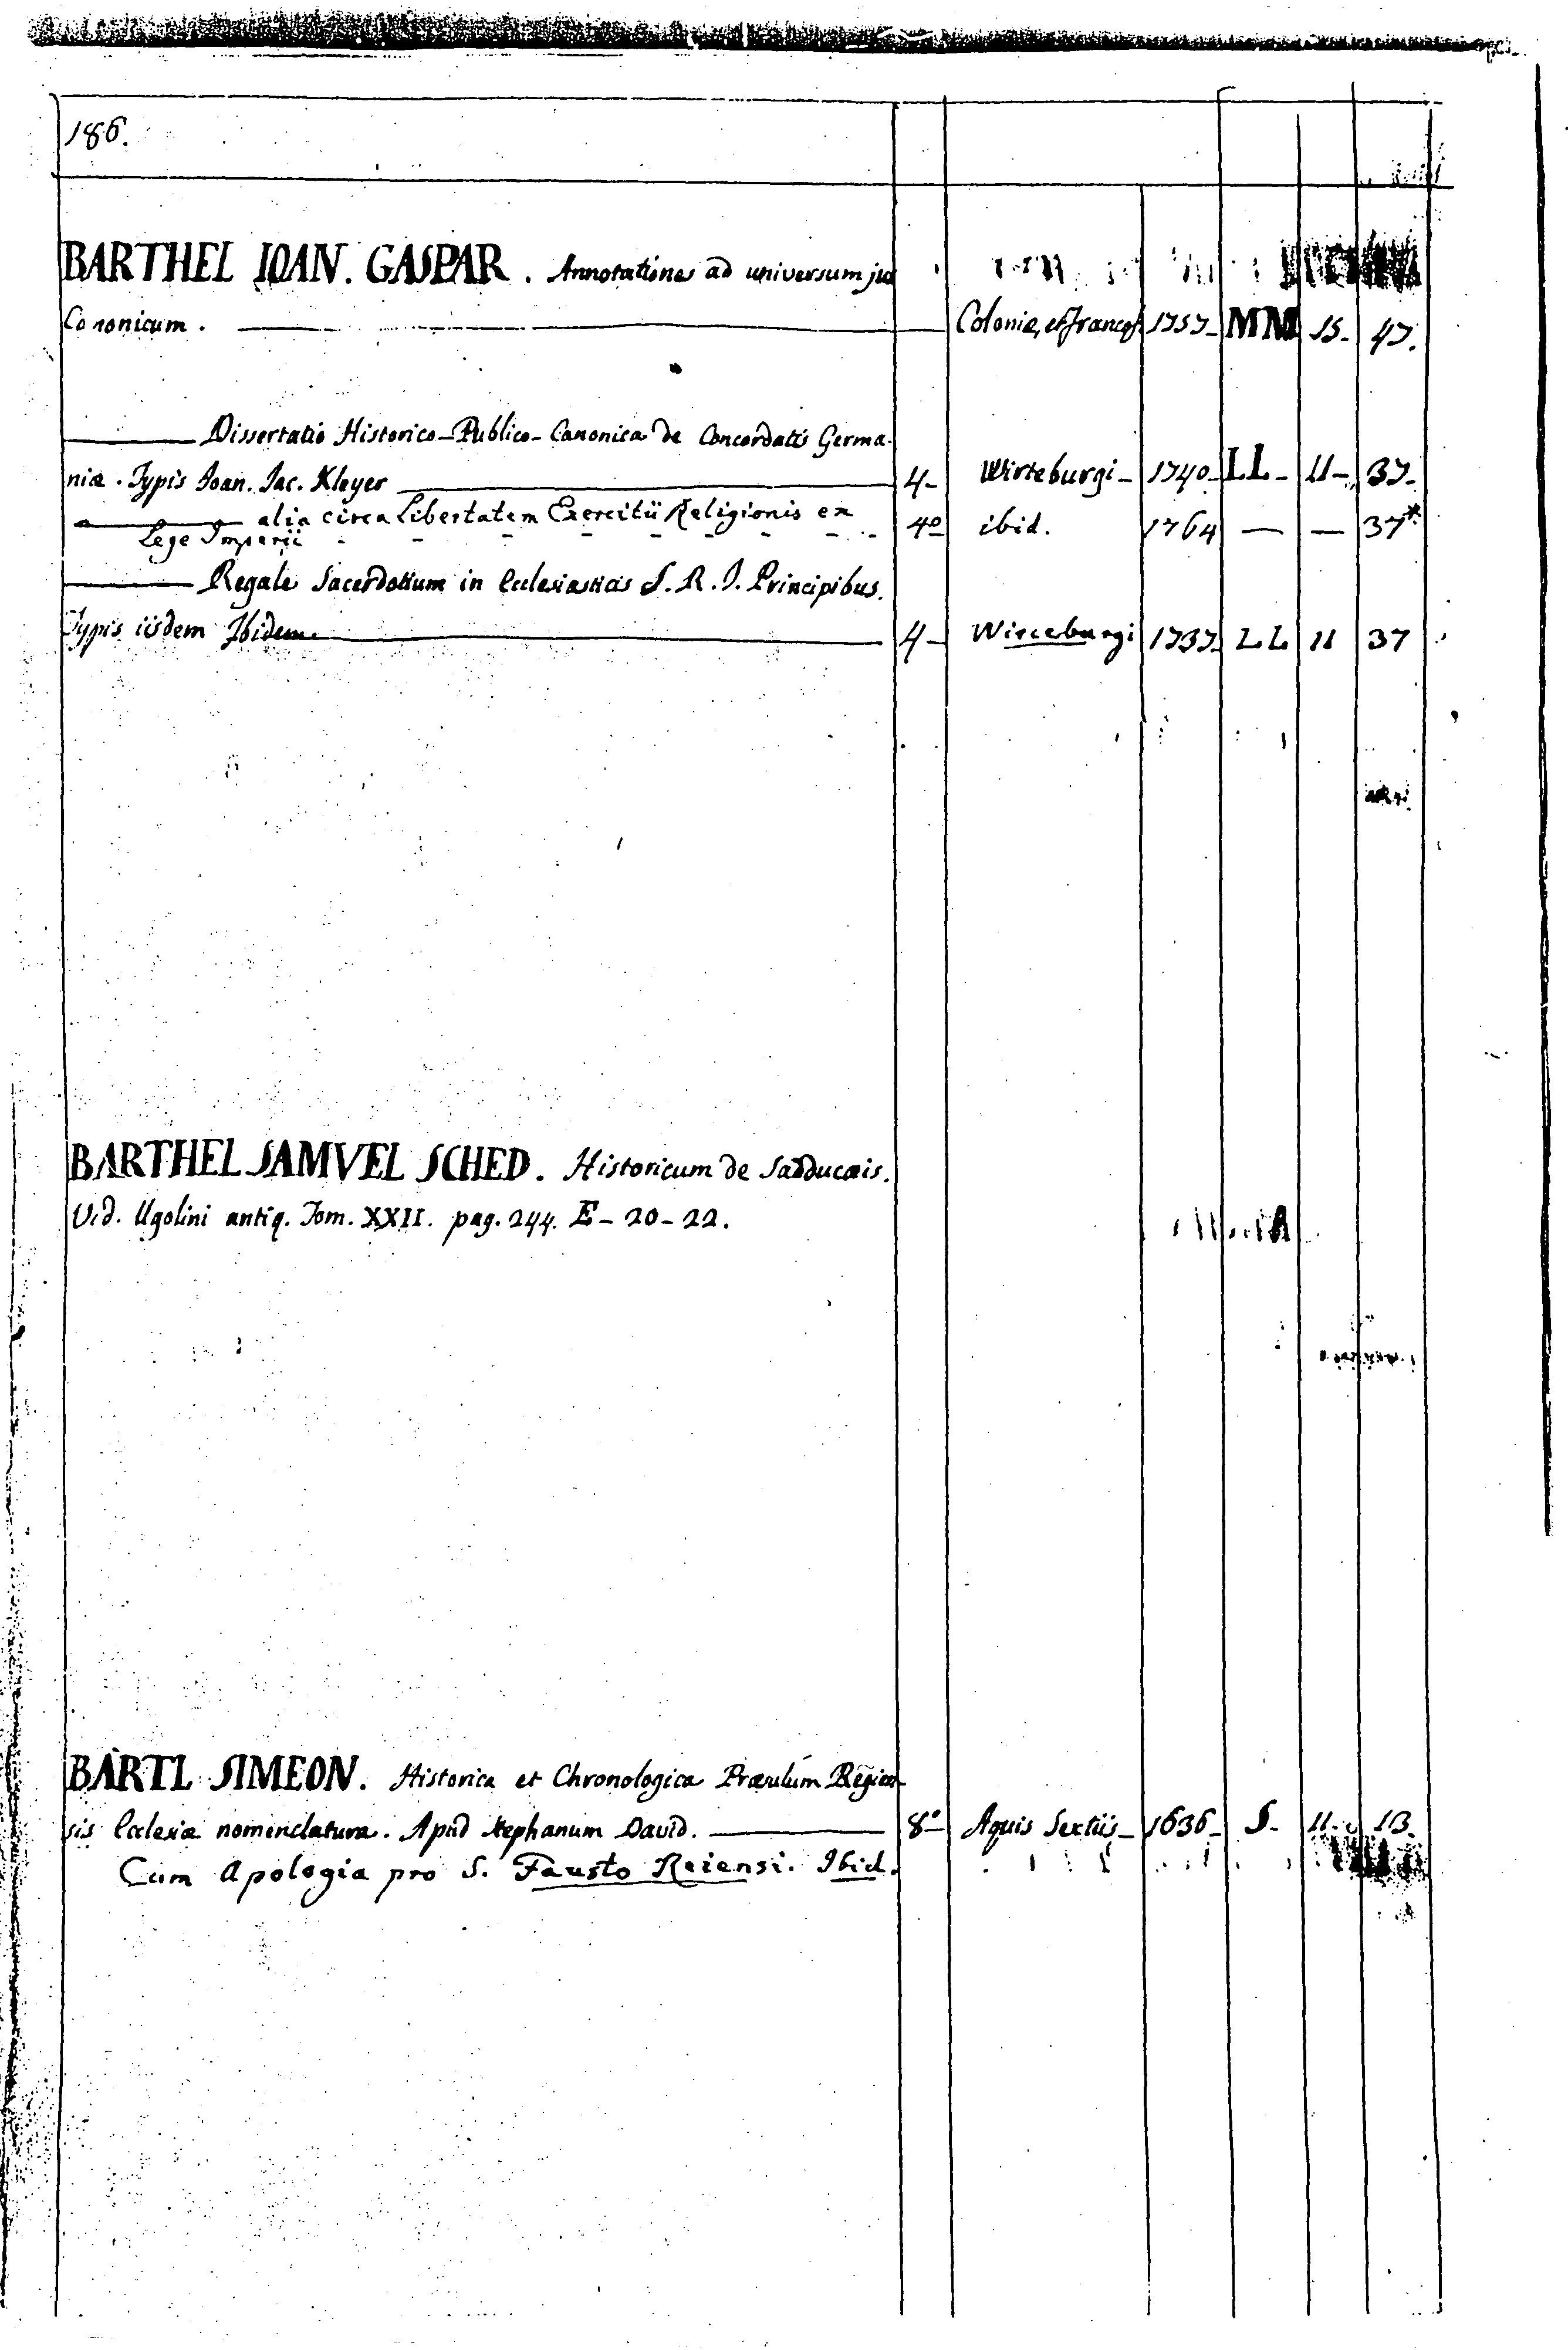 186.
BARTHEL IOAN. GASPAR. Annotationes ad universum jus
Canonicum. Coloniæ, et francof. 1757 MM 15 47.
Dissertatio Historico-Publico-Canonica de Concordatis Germa-
niæ. Typis Joan. Jac. Kleyer 4 Wirteburgi 1740 LL 11 37
alia circa Libertatem Exercitii Religionis ex
Lege Imperii 4º ibid. 1764 — — 37*
Regale Sacerdotium in Ecclesiasticis S. R. I. Principibus.
Typis iisdem Ibidem. 4 Wirceburgi 1737 LL 11 37
BARTHEL SAMVEL SCHED. Historicum de Sadducæis.
Vid. Ugolini antiq. Tom. XXII. pag. 244. E-20-22.
BARTL SIMEON. Historica et Chronologica Præsulum Regien-
sis Ecclesiæ nomenclatura. Apud Stephanum David. 8º Aquis Sextiis 1636 S. 11 13
Cum Apologia pro S. Fausto Reiensi. Ibid.